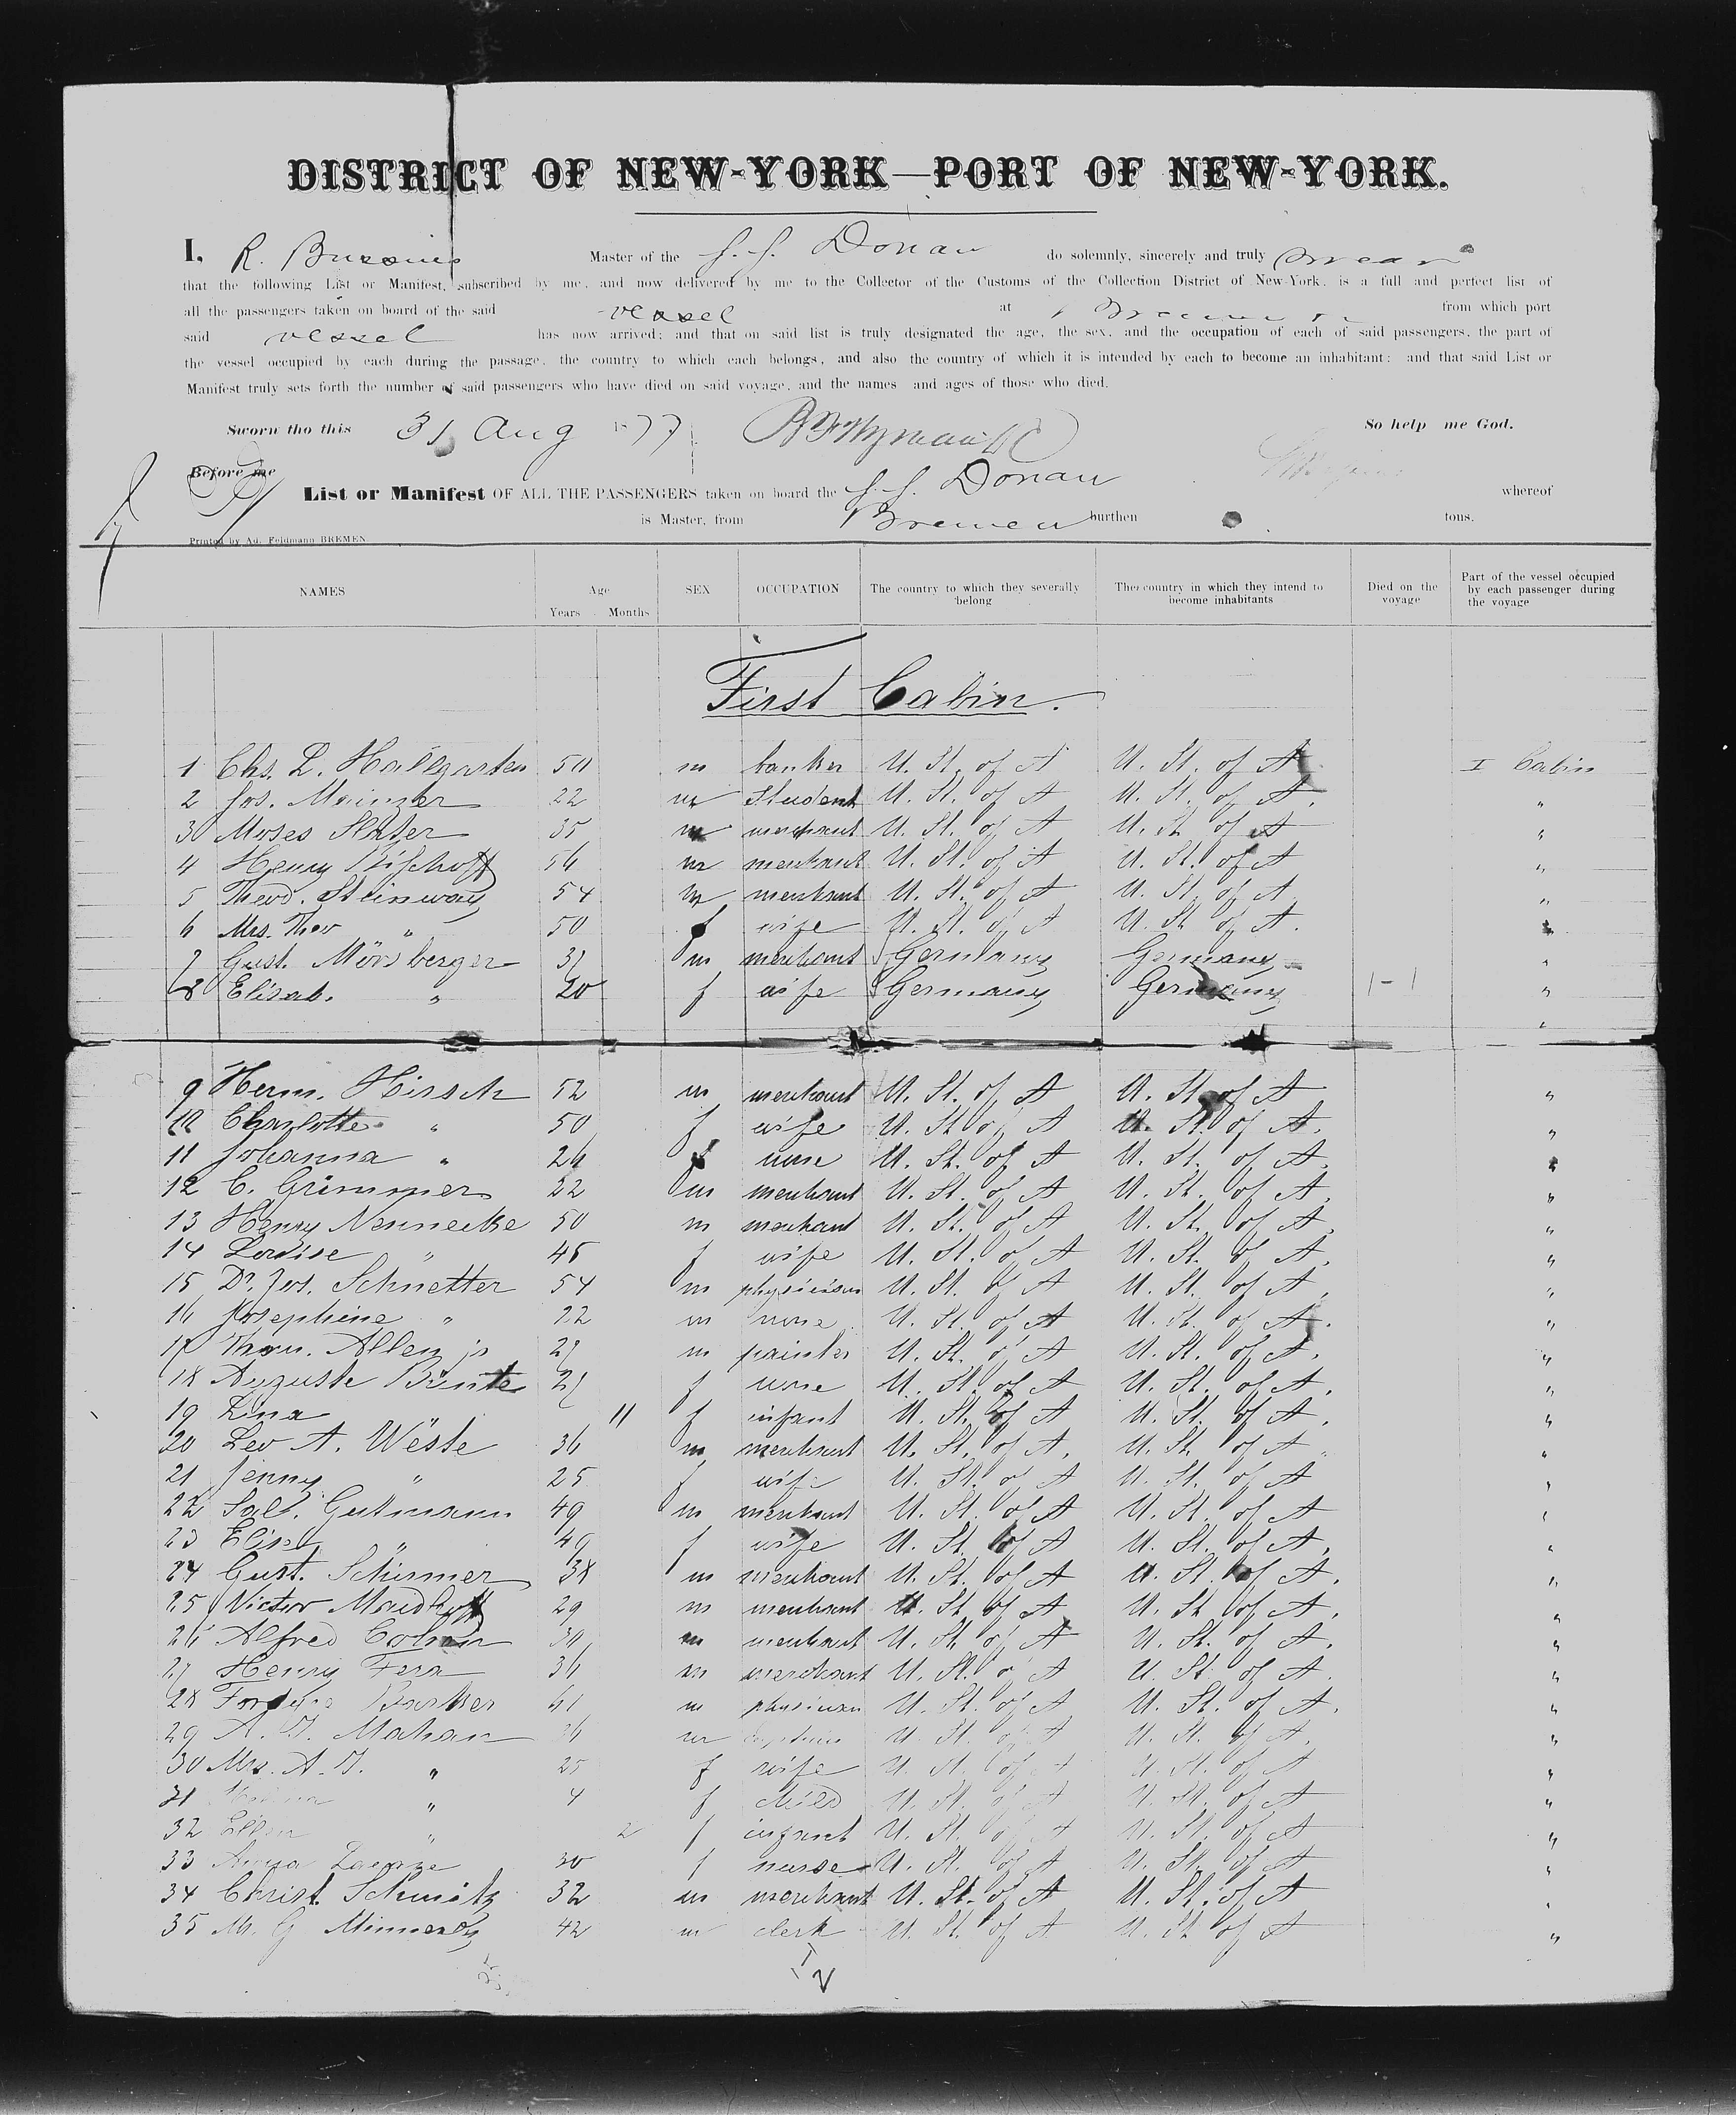 DISTRICT OF NEW-YORK—PORT OF NEW-YORK.
I, R. Bussius Master of the S.S. Donau do solemnly, sincerely and truly swear
that the following List or Manifest, subscribed by me, and now delivered by me to the Collector of the Customs of the Collection District of New-York, is a full and perfect list of
all the passengers taken on board of the said vessel at Bremen from which port
said vessel has now arrived; and that on said list is truly designated the age, the sex, and the occupation of each of said passengers, the part of
the vessel occupied by each during the passage, the country to which each belongs, and also the country of which it is intended by each to become an inhabitant: and that said List or
Manifest truly sets forth the number of said passengers who have died on said voyage, and the names and ages of those who died.
Sworn tho this 31 Aug 1877 So help me God.
Before me
List or Manifest OF ALL THE PASSENGERS taken on board the S.S. Donau whereof
is Master, from Bremen burthen tons.
Printed by Ad. Feldmann BREMEN
NAMES Age Years Months SEX OCCUPATION The country to which they severally belong The country in which they intend to become inhabitants Died on the voyage Part of the vessel occupied by each passenger during the voyage
First Cabin.
1 Chs. L. Hallgarten 50 m banker U. St. of A U. St. of A I Cabin
2 Jos. Mainzer 22 m Student U. St. of A U. St. of A. "
3 Moses 35 m merchant U. St. of A U. St. of A "
4 Henry Bischoff 56 m merchant U. St. of A U. St. of A "
5 Theod. Steinway 54 m merchant U. St. of A U. St. of A "
6 Mrs. Theo " 50 f wife U. St. of A U. St. of A. "
7 Gust. Mörsberger 37 m merchant Germany Germany "
8 Elisab. " 20 f wife Germany Germany 1-1 "
"
9 Herm. Hirsch 52 m merchant U. St. of A U. St. of A "
10 Charlotte " 50 f wife U. St. of A U. St. of A. "
11 Johanna " 26 f none U. St. of A U. St. of A. "
12 C. Grimmer 22 m merchant U. St. of A U. St. of A. "
13 Henry Nennecke 50 m merchant U. St. of A U. St. of A. "
14 Louise " 45 f wife U. St. of A U. St. of A. "
15 Dr. Jos. Schnetter 54 m physician U. St. of A U. St. of A. "
16 Josephine " 22 m none U. St. of A U. St. of A. "
17 Thom. Allen jr 27 m painter U. St. of A U. St. of A. "
18 Auguste Bünte 27 f none U. St. of A U. St. of A. "
19 Lina 11 f infant U. St. of A U. St. of A. "
20 Leo A. Wëste 36 m merchant U. St. of A. U. St. of A "
21 Jenny " 25 f wife U. St. of A U. St. of A "
22 Sal. Gutmann 49 m merchant U. St. of A U. St. of A "
23 Elise " 49 f wife U. St. of A U. St. of A. "
24 Gust. Schirmer 38 m merchant U. St. of A U. St. of A. "
25 Victor Maidhoff 29 m merchant U. St. of A U. St. of A. "
26 Alfred 30 m merchant U. St. of A U. St. of A. "
27 Henry Fera 36 m merchant U. St. of A U. St. of A. "
28 Fordyce Barker 41 m physician U. St. of A U. St. of A. "
29 A. T. Mahan m U. St. of A U. St. of A. "
30 Mrs. A. T. " 25 f wife U. St. of A U. St. of A "
31 " 4 f child U. St. of A U. St. of A "
32 Ellen " 2 f infant U. St. of A U. St. of A "
33 30 f nurse U. St. of A U. St. of A "
34 Christ. Schmitz 32 m merchant U. St. of A U. St. of A "
35 M. G 42 m clerk U. St. of A U. St. of A "